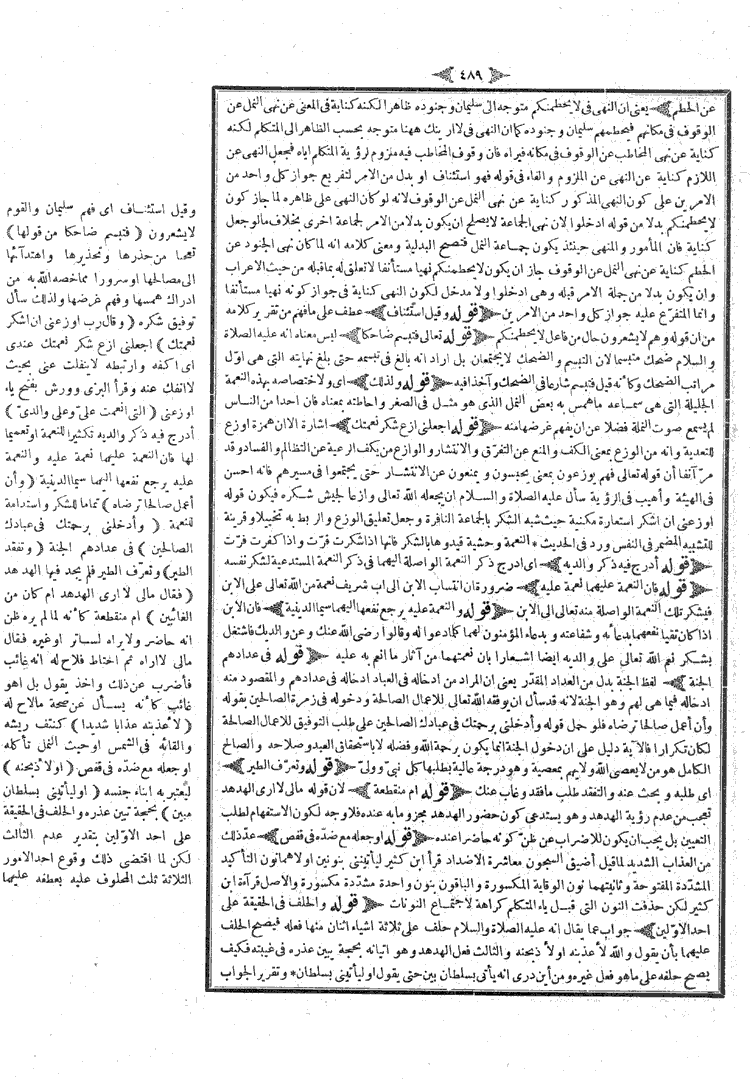 ٤٨٩
عن الحطم﴾ يعنى ان النهى فى لا يحطمنكم متوجه الى سليمان وجنوده ظاهرا لكنه كناية فى المعنى عن نهى النمل عن
الوقوف فى مكانهم فيحطمهم سليمان وجنوده كما ان النهى فى لا ارينك ههنا متوجه بحسب الظاهر الى المتكلم لكنه
كناية عن نهى المخاطب عن الوقوف فى مكانه فيراه فان وقوف المخاطب فيه ملزوم لرؤية المتكلم اياه فجعل النهى عن
اللازم كناية عن النهى عن الملزوم والفاء فى قوله فهو استئناف او بدل من الامر لتفريع جواز كل واحد من
الامرين على كون النهى المذكور كناية عن نهى النمل عن الوقوف لانه لو كان النهى على ظاهره لما جاز كون
لا يحطمنكم بدلا من قوله ادخلوا لان نهى الجماعة لا يصلح ان يكون بدلا من الامر لجماعة اخرى بخلاف مالو جعل
كناية فان المأمور والمنهى حينئذ يكون جماعة النمل فتصح البدلية ومعنى كلامه انه لما كان نهى الجنود عن
الحطم كناية عن نهى النمل عن الوقوف جاز ان يكون لا يحطمنكم نهيا مستأنفا لا تعلق له بما قبله من حيث الاعراب
وان يكون بدلا من جملة الامر قبله وهى ادخلوا ولا مدخل لكون النهى كناية فى جواز كونه نهيا مستأنفا
وانما المتفرع عليه جواز كل واحد من الامرين ﴿قوله وقيل استئناف﴾ عطف على ما فهم من تقرير كلامه
من ان قوله وهم لا يشعرون حال من فاعل لا يحطمنكم ﴿قوله تعالى فتبسم ضاحكا﴾ ليس معناه انه عليه الصلاة
والسلام ضحك متبسما لان التبسم والضحك لا يجتمعان بل اراد انه بالغ فى تبسمه حتى بلغ نهايته التى هى اول
مراتب الضحك وكأنه قيل فتبسم شارعا فى الضحك وآخذا فيه ﴿قوله ولذلك﴾ اى ولاختصاصه بهذه النعمة
الجليلة التى هى سماعه ما همس به بعض النمل الذى هو مثل فى الصغر واحاطته بمعناه فان احدا من الناس
لم يسمع صوت النملة فضلا عن ان يفهم غرضها منه ﴿قوله اجعلنى ازع شكر نعمتك﴾ اشارة الا ان همزة اوزع
للتعدية وانه من الوزع بمعنى الكف والمنع عن التفرق والانتشار والوازع من يكف الرعية عن التظالم والفساد وقد
مر آنفا أن قوله تعالى فهم يوزعون بمعنى يحبسون ويمنعون عن الانتشار حتى يجتمعوا فى مسيرهم فانه احسن
فى الهيئة وأهيب فى الرؤية سأل عليه الصلاة والسلام ان يجعله الله تعالى وازعا لجيش شكره فيكون قوله
اوزعنى ان اشكر استعارة مكنية حيث شبه الشكر بالجماعة النافرة وجعل تعليق الوزع والربط به تخييلا وقرينة
للتشبيه المضمر فى النفس ورد فى الحديث * النعمة وحشية قيدوها بالشكر فانها اذا شكرت قرت واذا كفرت فرت
﴿قوله أدرج فيه ذكر والديه﴾ اى ادرج ذكر النعمة الواصلة اليهما فى ذكر النعمة المستدعية لشكر نفسه
﴿قوله فان النعمة عليهما نعمة عليه﴾ ضرورة ان انتساب الابن الى اب شريف نعمة من الله تعالى على الابن
فيشكر تلك النعمة الواصلة منه تعالى الى الابن ﴿قوله والنعمة عليه يرجع نفعها اليهما سيما الدينية﴾ فان الابن
اذا كان تقيا نفعهما بدعائه وشفاعته وبدعاء المؤمنون لهما كما دعوا له وقالوا رضى الله عنك وعن والديك فاشتغل
بشكر نعم الله تعالى على والديه ايضا اشعارا بان نعمتهما من آثار ما انعم به عليه ﴿قوله فى عدادهم
الجنة﴾ لفظ الجنة بدل من العداد المقدر يعنى ان المراد من ادخاله فى العباد ادخاله فى عدادهم والمقصود منه
ادخاله فيما هى لهم وهو الجنة لانه قد سأل ان يوفقه الله تعالى للاعمال الصالحة ودخوله فى زمرة الصالحين بقوله
وأن أعمل صالحا ترضاه فلو حمل قوله وأدخلنى برحمتك فى عبادك الصالحين على طلب التوفيق للاعمال الصالحة
لكان تكرارا فالآية دليل على ان دخول الجنة انما يكون برحمة الله وفضله لا باستحقاق العبد وصلاحه والصالح
الكامل هو من لا يعصى الله ولا يهم بمعصية وهو درجة عالية يطلبها كل نبى وولى ﴿قوله وتعرف الطير﴾
اى طلبه وبحث عنه والتفقد طلب ما فقد وغاب عنك ﴿قوله ام منقطعة﴾ لان قوله مالى لا ارى الهدهد
تعجب من عدم رؤية الهدهد وهو يستدعى كون حضور الهدهد مجزوما به عنده فلا وجه لكون الاستفهام لطلب
التعيين بل يجب ان يكون للاضراب عن ظن كونه حاضرا عنده ﴿قوله او جعله مع ضده فى قفص﴾ عد ذلك
من العذاب الشديد لما قيل أضيق السجون معاشرة الاضداد قرأ ابن كثير ليأتيننى بنونين اولاهما نون التأكيد
المشددة المفتوحة وثانيتهما نون الوقاية المكسورة والباقون بنون واحدة مشددة مكسورة والاصل قراءة ابن
كثير لكن حذفت النون التى قبل ياء المتكلم كراهة لاجتماع النونات ﴿قوله والحلف فى الحقيقة على
احد الاولين﴾ جواب عما يقال انه عليه الصلاة والسلام حلف على ثلاثة اشياء اثنان منها فعله فيصح الحلف
عليهما بأن يقول والله لأعذبنه اولأذبحنه والثالث فعل الهدهد وهو اتيانه بحجة يبين عذره فى غيبته فكيف
يصح حلفه على ما هو فعل غيره ومن أين درى انه يأتى بسلطان بين حتى يقول اوليأتينى بسلطان * وتقرير الجواب
وقيل استئناف اى فهم سليمان والقوم
لا يشعرون ( فتبسم ضاحكا من قولها )
تعجبا من حذرها وتحذيرها واهتدآئها
الى مصالحها او سرورا مما خصه الله به من
ادراك همسها وفهم غرضها ولذلك سأل
توفيق شكره ( وقال رب اوزعنى ان اشكر
نعمتك ) اجعلنى ازع شكر نعمتك عندى
اى اكفه وارتبطه لا ينفلت عنى بحيث
لا انفك عنه وقرأ البزى وورش بفتح ياء
اوزعنى ( التى انعمت على وعلى والدى )
أدرج فيه ذكر والديه تكثيرا للنعمة او تعميما
لها فان النعمة عليهما نعمة عليه والنعمة
عليه يرجع نفعها اليهما سيما الدينية ( وأن
أعمل صالحا ترضاه ) تماما للشكر واستدامة
للنعمة ( وأدخلنى برحمتك فى عبادك
الصالحين ) فى عدادهم الجنة ( وتفقد
الطير ) وتعرف الطير فلم يجد فيها الهدهد
( فقال مالى لا ارى الهدهد ام كان من
الغائبين ) ام منقطعة كأنه لما لم يره ظن
انه حاضر ولا يراه لساتر او غيره فقال
مالى لا اراه ثم احتاط فلاح له انه غائب
فأضرب عن ذلك واخذ يقول بل اهو
غائب كأنه يسأل عن صحة ما لاح له
( لأعذبنه عذابا شديدا ) كنتف ريشه
والقائه فى الشمس او حيث النمل تأكله
او جعله مع ضده فى قفص ( اولأذبحنه )
ليعتبر به ابناء جنسه ( اوليأتينى بسلطان
مبين ) بحجة تبين عذره والحلف فى الحقيقة
على احد الاولين بتقدير عدم الثالث
لكن لما اقتضى ذلك وقوع احد الامور
الثلاثة ثلث المحلوف عليه بعطفه عليهما